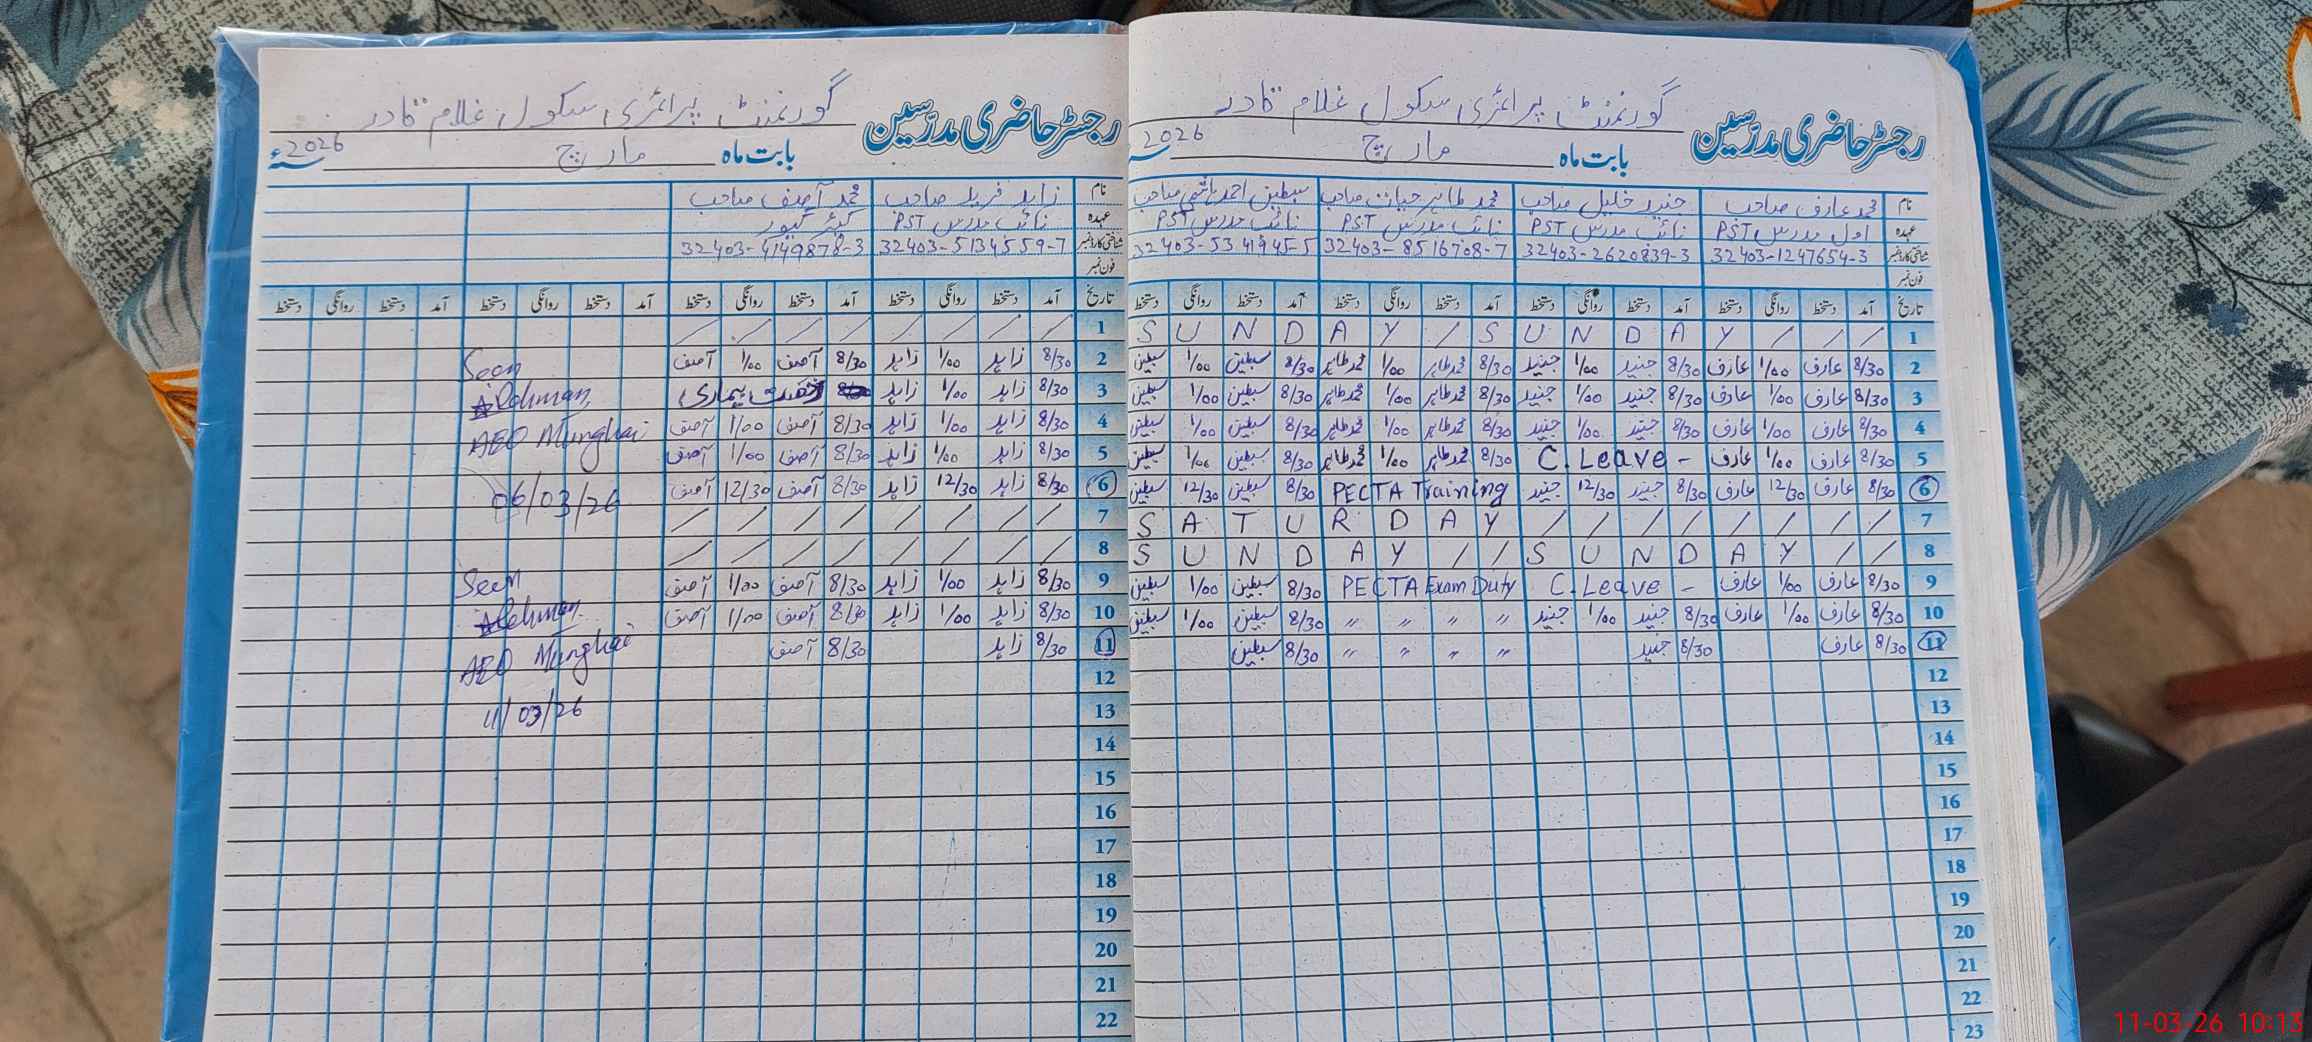 رجسٹر حاضری مدرّسین گورنمنٹ پرائمری سکول غلام قادر
بابت ماہ مارچ 2026
نام محمد عارف صاحب جنید خلیل صاحب محمد طاہر حیات صاحب سبطین احمد ہاشمی صاحب
عہدہ اول مدرس PST نائب مدرس PST نائب مدرس PST نائب مدرس PST
شناختی کارڈ نمبر 32403-1247654-3 32403-2620839-3 32403-8516708-7 32403-5341945-5
فون نمبر
تاریخ آمد دستخط روانگی دستخط آمد دستخط روانگی دستخط آمد دستخط روانگی دستخط آمد دستخط روانگی دستخط
1 S U N D A Y / S U N D A Y / / /
2 8/30 عارف 1/00 عارف 8/30 جنید 1/00 جنید 8/30 محمد طاہر 1/00 محمد طاہر 8/30 سبطین 1/00 سبطین
3 8/30 عارف 1/00 عارف 8/30 جنید 1/00 جنید 8/30 محمد طاہر 1/00 محمد طاہر 8/30 سبطین 1/00 سبطین
4 8/30 عارف 1/00 عارف 8/30 جنید 1/00 جنید 8/30 محمد طاہر 1/00 محمد طاہر 8/30 سبطین 1/00 سبطین
5 8/30 عارف 1/00 عارف C. Leave - 8/30 محمد طاہر 1/00 محمد طاہر 8/30 سبطین 1/00 سبطین
6 8/30 عارف 12/30 عارف 8/30 جنید 12/30 جنید PECTA Training 8/30 سبطین 12/30 سبطین
7 S A T U R D A Y / / / / / / / /
8 S U N D A Y / / S U N D A Y / /
9 8/30 عارف 1/00 عارف C. Leave - PECTA Exam Duty 8/30 سبطین 1/00 سبطین
10 8/30 عارف 1/00 عارف 8/30 جنید 1/00 جنید " " " " 8/30 سبطین 1/00 سبطین
11 8/30 عارف 8/30 جنید " " " " 8/30 سبطین
12
13
14
15
16
17
18
19
20
21
22
23
رجسٹر حاضری مدرّسین گورنمنٹ پرائمری سکول غلام قادر
بابت ماہ مارچ 2026 سنہء
نام زاہد فرید صاحب محمد آصف صاحب
عہدہ نائب مدرس PST کیئر گیور
شناختی کارڈ نمبر 32403-5134559-7 32403-4149878-3
فون نمبر
تاریخ آمد دستخط روانگی دستخط آمد دستخط روانگی دستخط آمد دستخط روانگی دستخط آمد دستخط روانگی دستخط
1 / / / / / / / /
2 8/30 زاہد 1/00 زاہد 8/30 آصف 1/00 آصف Seen
3 8/30 زاہد 1/00 زاہد رخصت بیماری Rehman
4 8/30 زاہد 1/00 زاہد 8/30 آصف 1/00 آصف AEO Munghai
5 8/30 زاہد 1/00 زاہد 8/30 آصف 1/00 آصف
6 8/30 زاہد 12/30 زاہد 8/30 آصف 12/30 آصف 06/03/26
7 / / / / / / / /
8 / / / / / / / /
9 8/30 زاہد 1/00 زاہد 8/30 آصف 1/00 آصف Seen
10 8/30 زاہد 1/00 زاہد 8/30 آصف 1/00 آصف Rehman
11 8/30 زاہد 8/30 آصف AEO Munghai
12
13 11/03/26
14
15
16
17
18
19
20
21
22
11-03-26 10:13